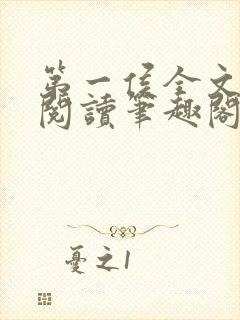 第一侯全文
閱讀筆趣閣
憂之1